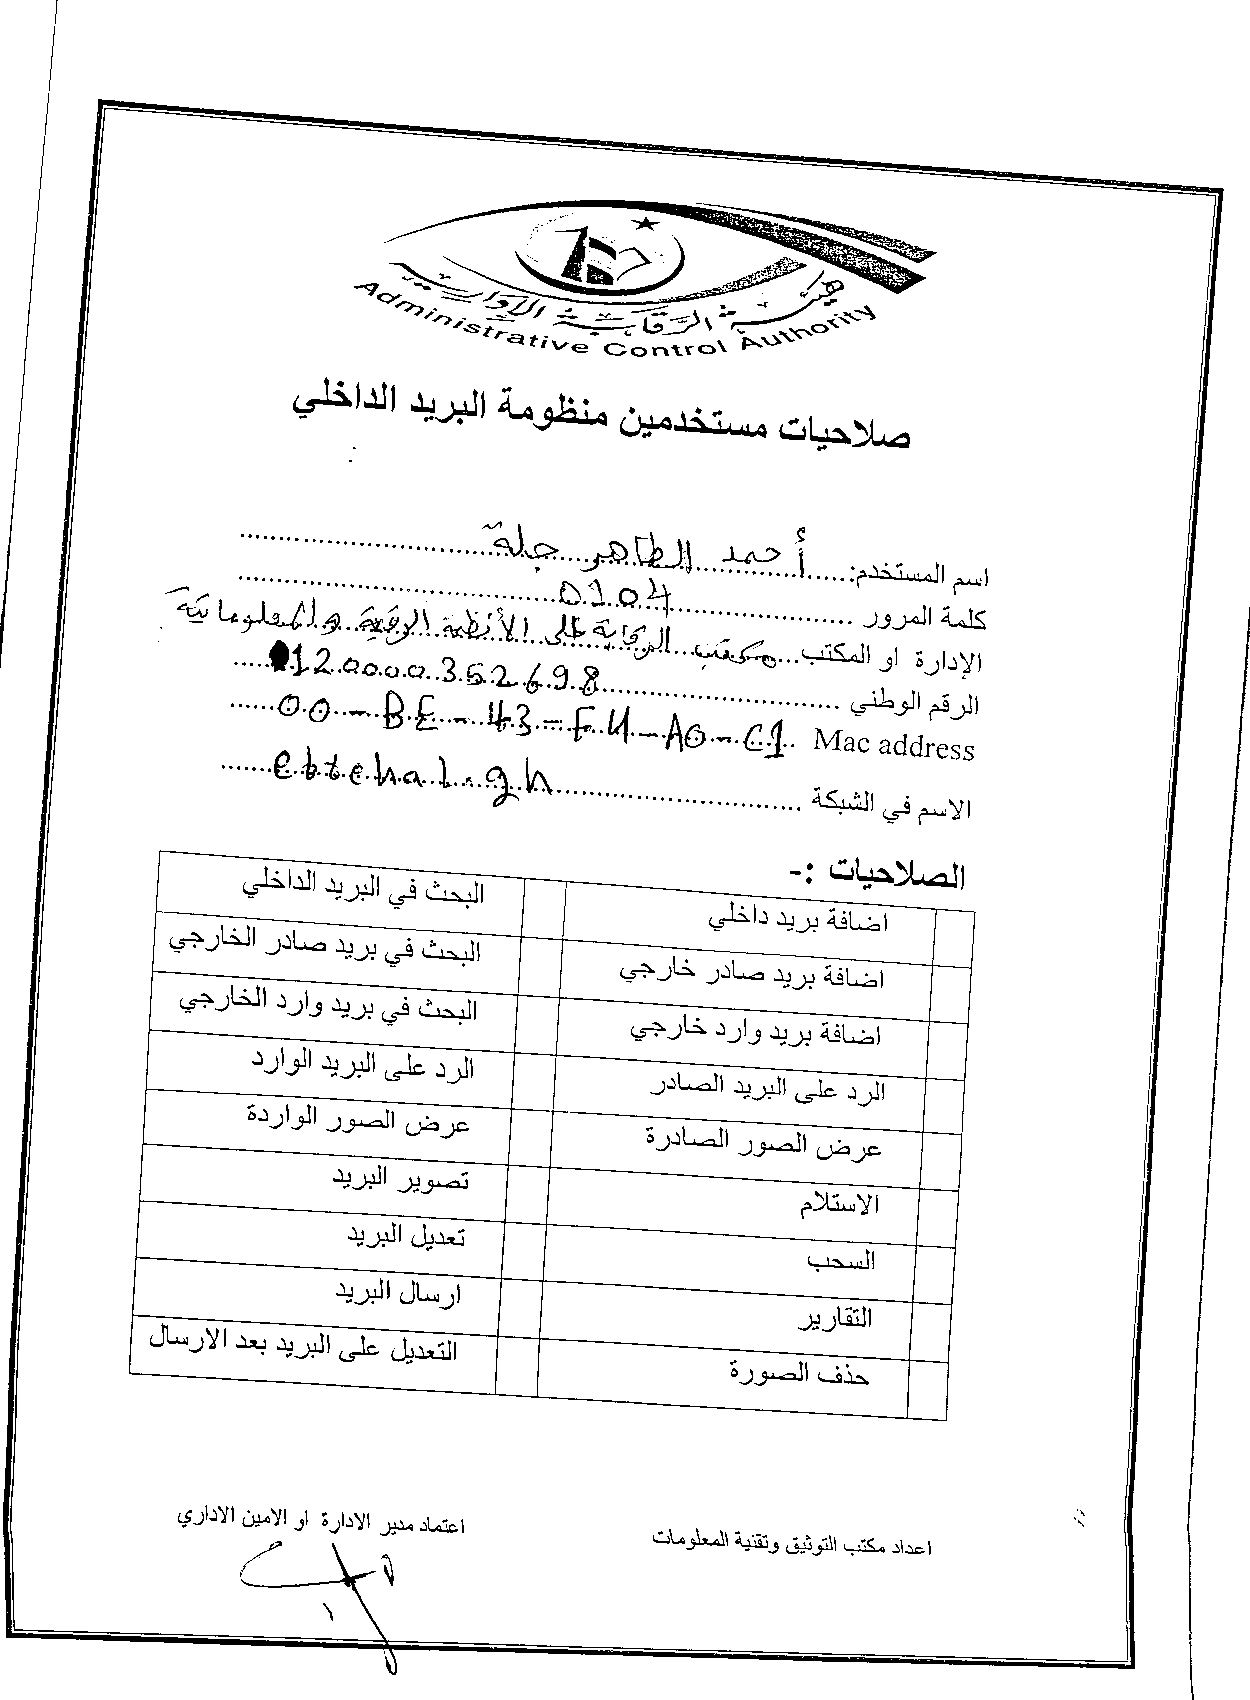 هيئة الرقابة الإدارية
Administrative Control Authority
صلاحيات مستخدمين منظومة البريد الداخلي
اسم المستخدم: أحمد الطاهر جلة
كلمة المرور 0104
الإدارة او المكتب مكتب الرقابة على الأنظمة الرقمية والمعلوماتية
الرقم الوطني 120000352698
Mac address 00-BE-43-F4-A0-C1
الاسم في الشبكة ebtehal.gh
الصلاحيات :-
اضافة بريد داخلي البحث في البريد الداخلي
اضافة بريد صادر خارجي البحث في بريد صادر الخارجي
اضافة بريد وارد خارجي البحث في بريد وارد الخارجي
الرد على البريد الصادر الرد على البريد الوارد
عرض الصور الصادرة عرض الصور الواردة
الاستلام تصوير البريد
السحب تعديل البريد
التقارير ارسال البريد
حذف الصورة التعديل على البريد بعد الارسال
اعداد مكتب التوثيق وتقنية المعلومات اعتماد مدير الادارة او الامين الاداري